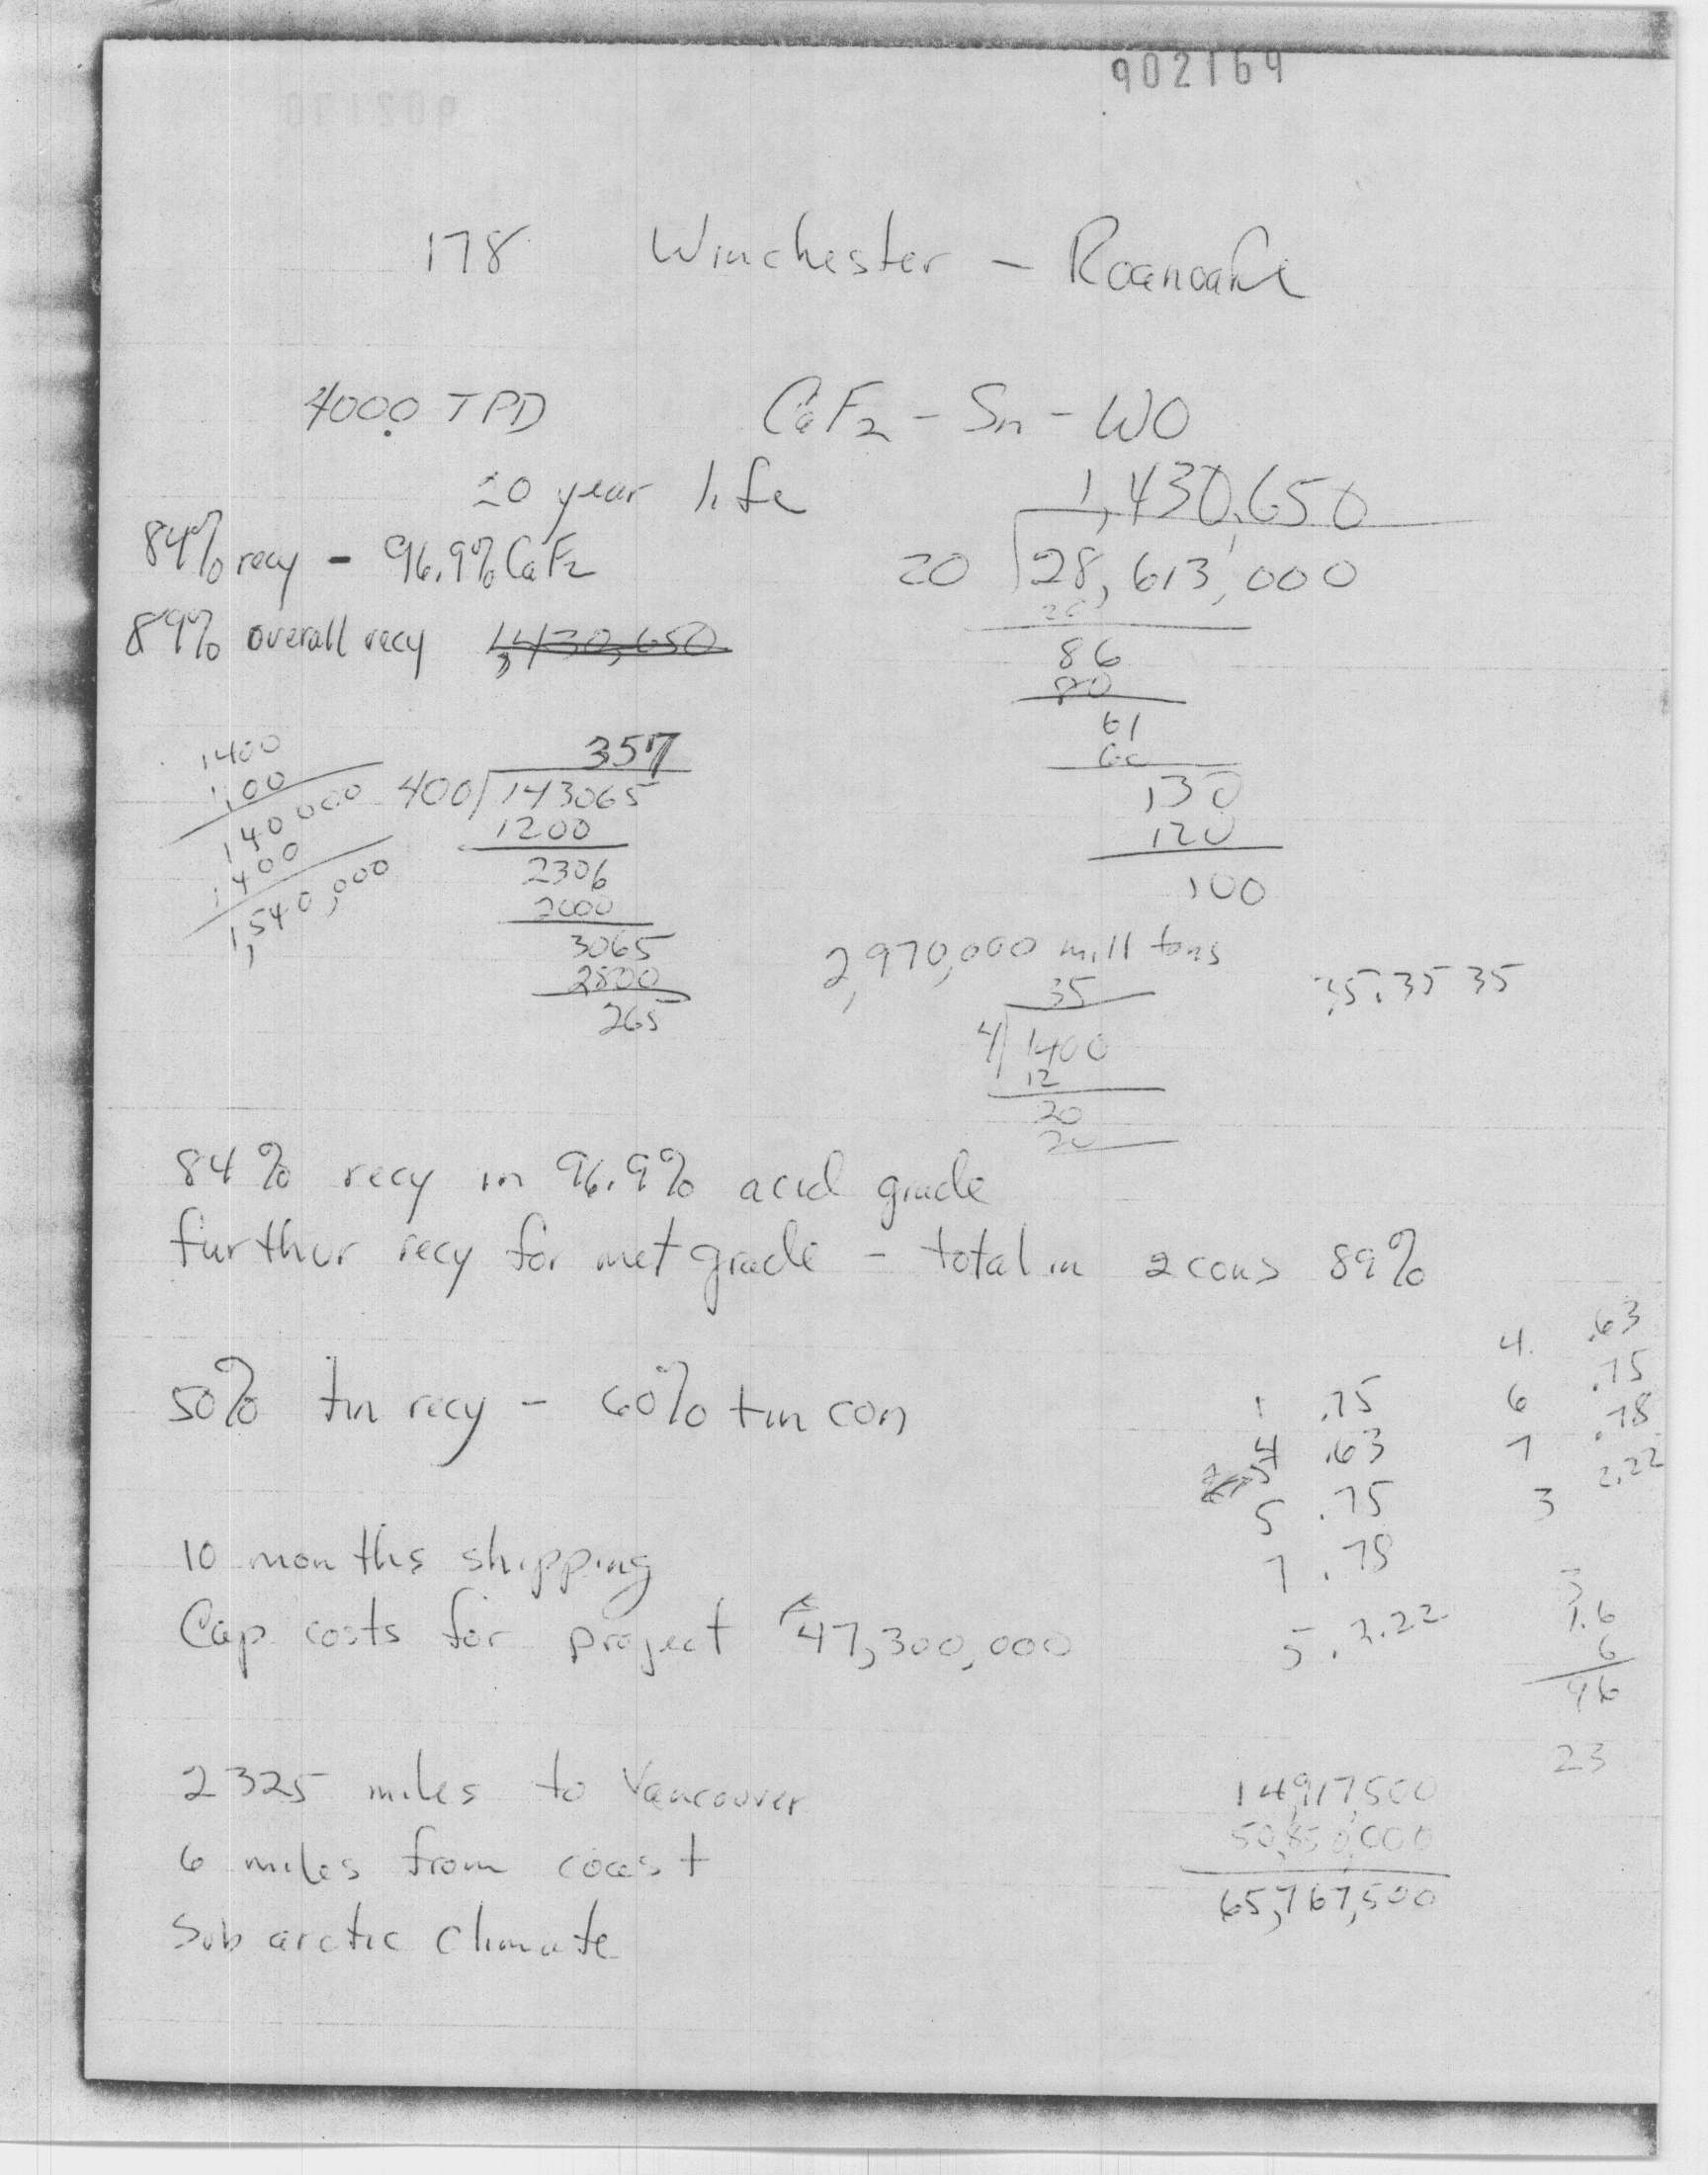 902169
178 Winchester - Roanoake
4000 TPD CaF2 - Sn - WO
20 year life
1,430,650
84% recy - 96.9% CaF2
20 28,613,000
20
89% overall recy 1,430,650
86
80
61
60
130
120
100
1400
100
140000
1400
1,540,000
357
400 143065
1200
2306
2000
3065
2800
265
2,970,000 mill tons
35
35.3535
4 1400
12
20
20
84% recy in 96.9% acid grade
further recy for met grade - total in 2 cons 89%
50% tin recy - 60% tin con
4. .63
6 .75
7 .78
3 2.22
1 .75
4 .63
5 .75
7 .78
5. 2.22
10 months shipping
Cap costs for project 47,300,000
1.6
6
96
23
2325 miles to Vancouver
6 miles from coast
Sub arctic climate
14,917,500
50,850,000
65,767,500